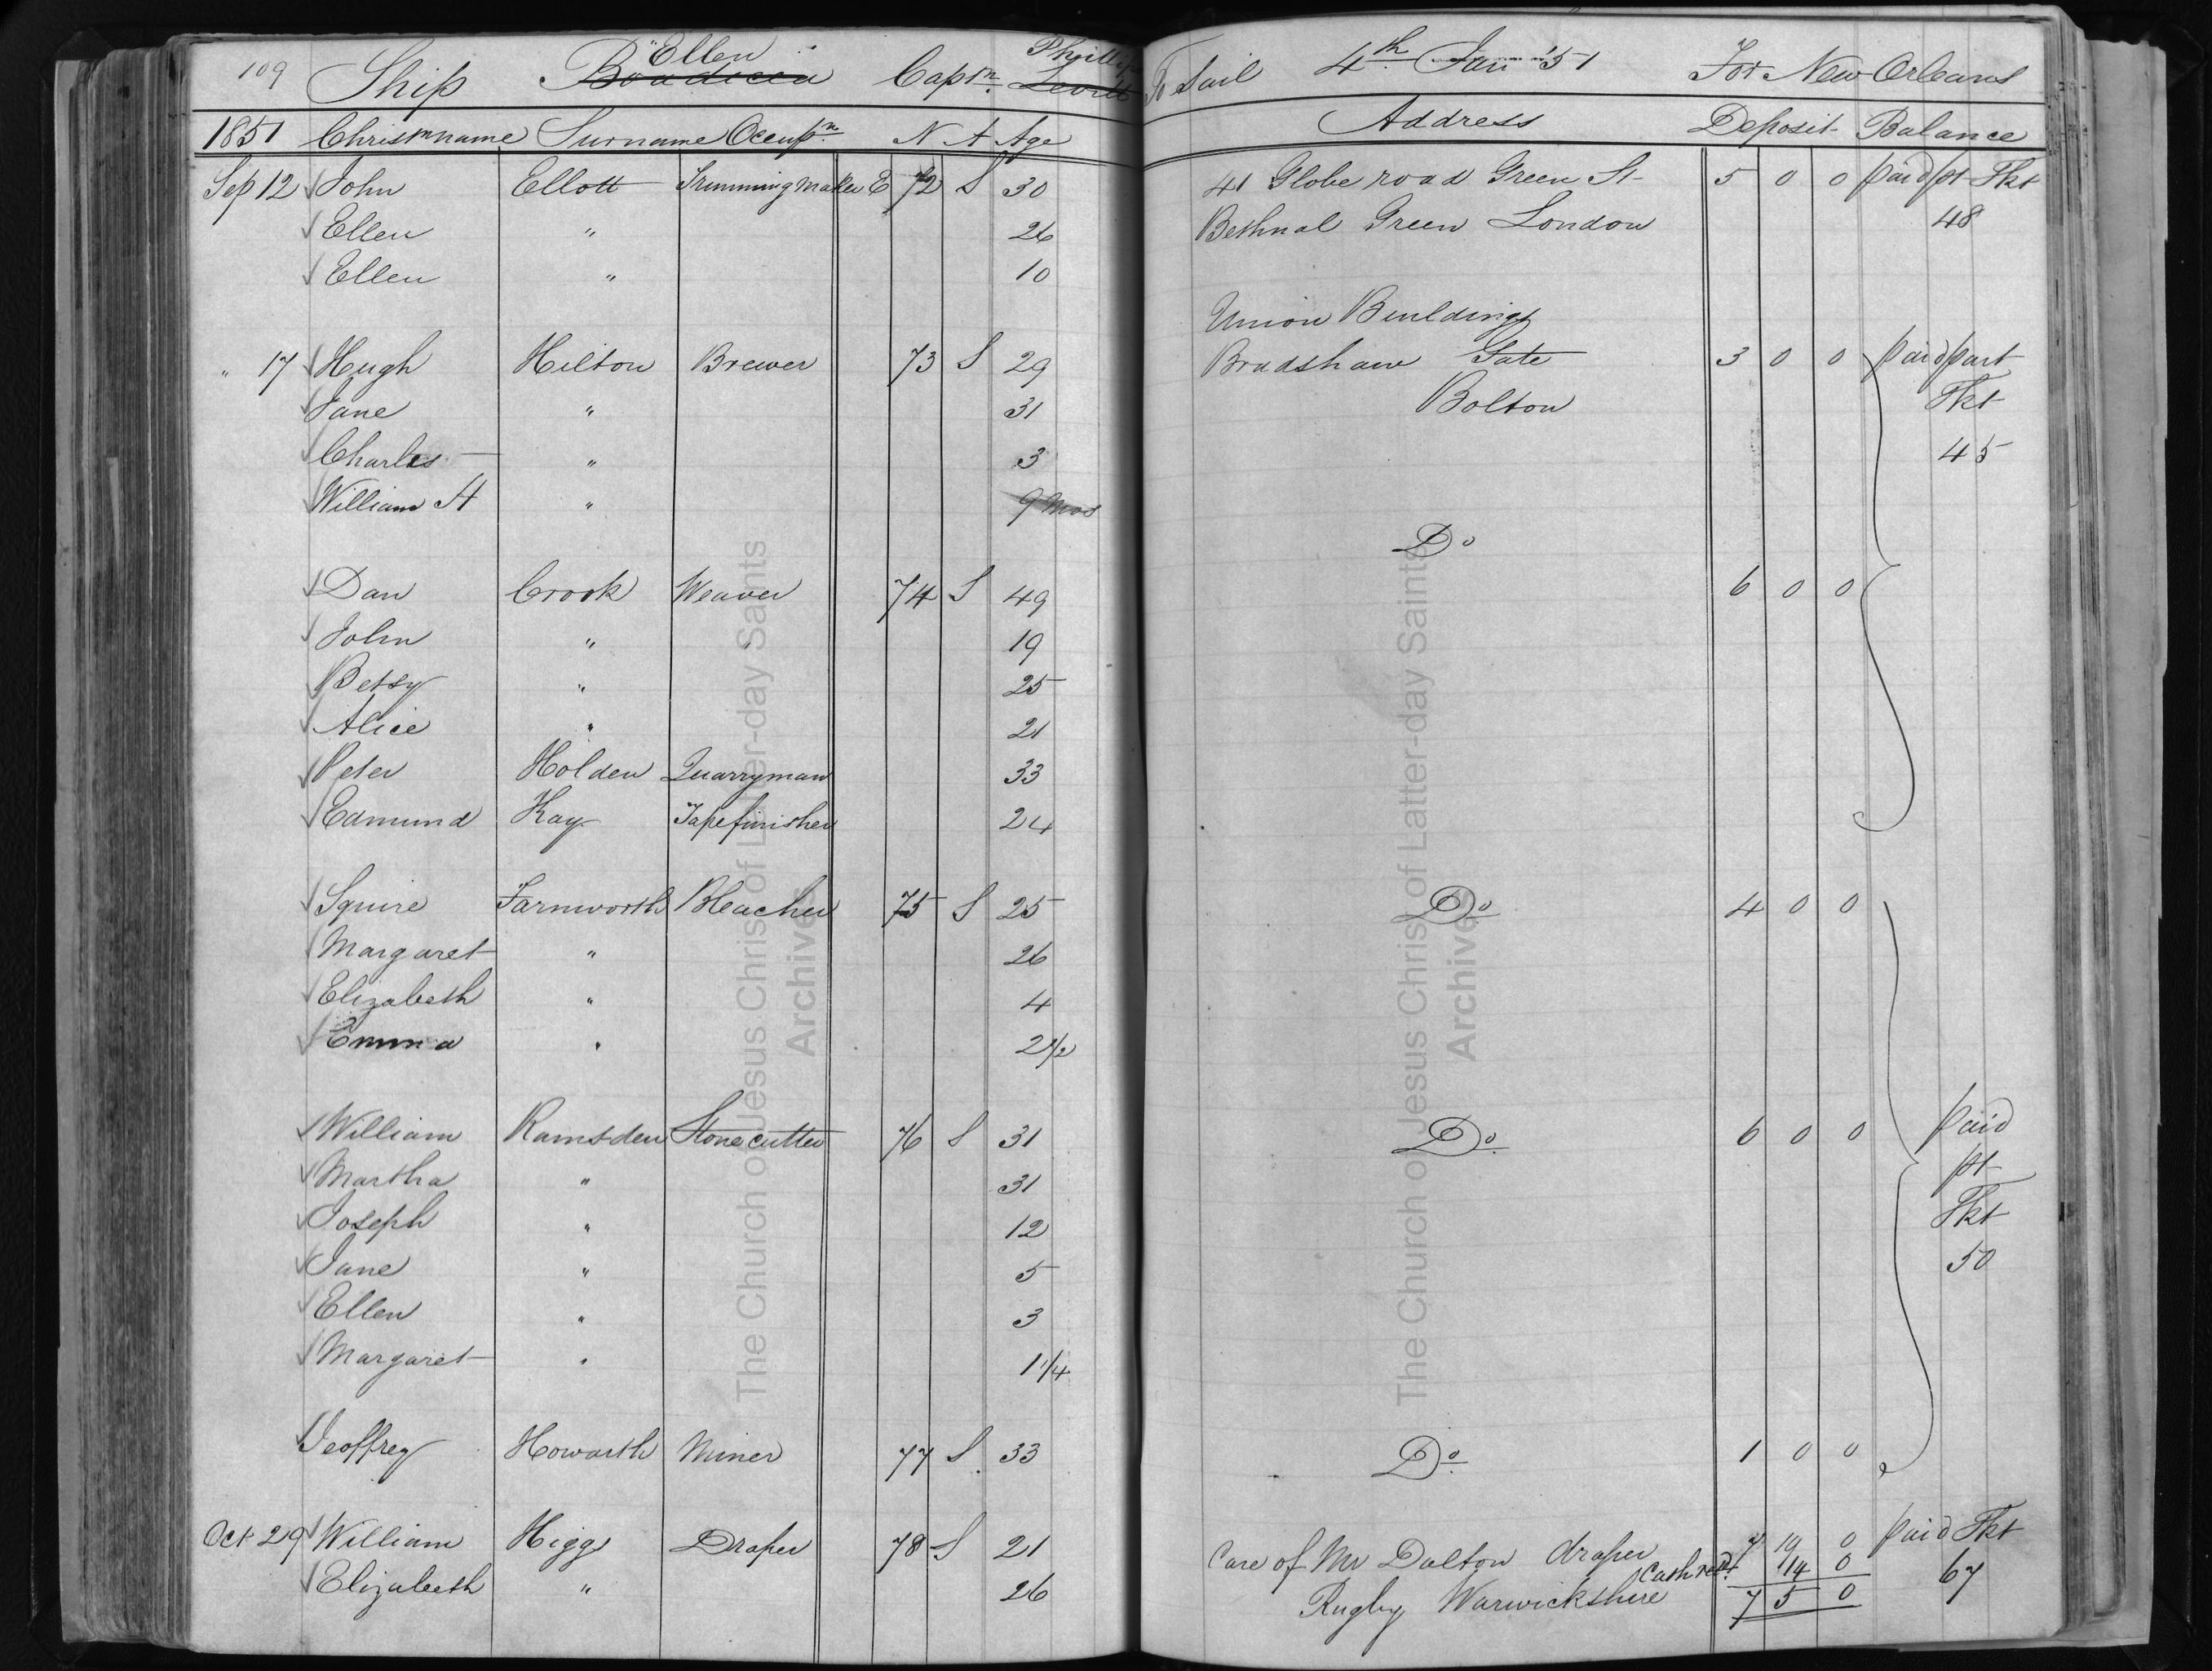 109 Ship Ellen Boadicea Captn. Phillips To Sail 4th Jan '51 For New Orleans
1851 Christnname Surname Occupn. N A Age Address Deposit Balance
Sep 12 John Ellott Trimming Maker E 72 S 30 41 Globe road Green St 5 0 0 paid pt Tkt
Ellen " 26 Bethnal Green London 48
Ellen " 10
Union Buildings
" 17 Hugh Hilton Brewer 73 S 29 Bradshaw Gate 3 0 0 paid part
Jane " 31 Bolton Tkt
Charles " 3 45
William H " 9 Mos
Do
Dan Crook Weaver 74 S 49 6 0 0
John " " 19
Betsy " 25
Alice " 21
Peter Holden Quarryman 33
Edmund Kay Tapefinisher 24
Squire Farnworth Bleacher 75 S 25 Do 4 0 0
Margaret " 26
Elizabeth " 4
Emma " 2 1/2
William Ramsden Stonecutter 76 S 31 Do. 6 0 0 paid
Martha " 31 pt
Joseph " 12 Tkt
Jane " 5 50
Ellen " 3
Margaret " 1 1/4
Jeoffrey Howarth Miner 77 S. 33 Do. 1 0 0
Oct 29 William Higgs Draper 78 S 21 Care of Mr Dalton draper 7 19 0 paid Tkt
Cash retd. 14 0
Elizabeth " 26 Rugby Warwickshire 7 5 0 67
The Church of Jesus Christ of Latter-day Saints
Archives
The Church of Jesus Christ of Latter-day Saints
Archives